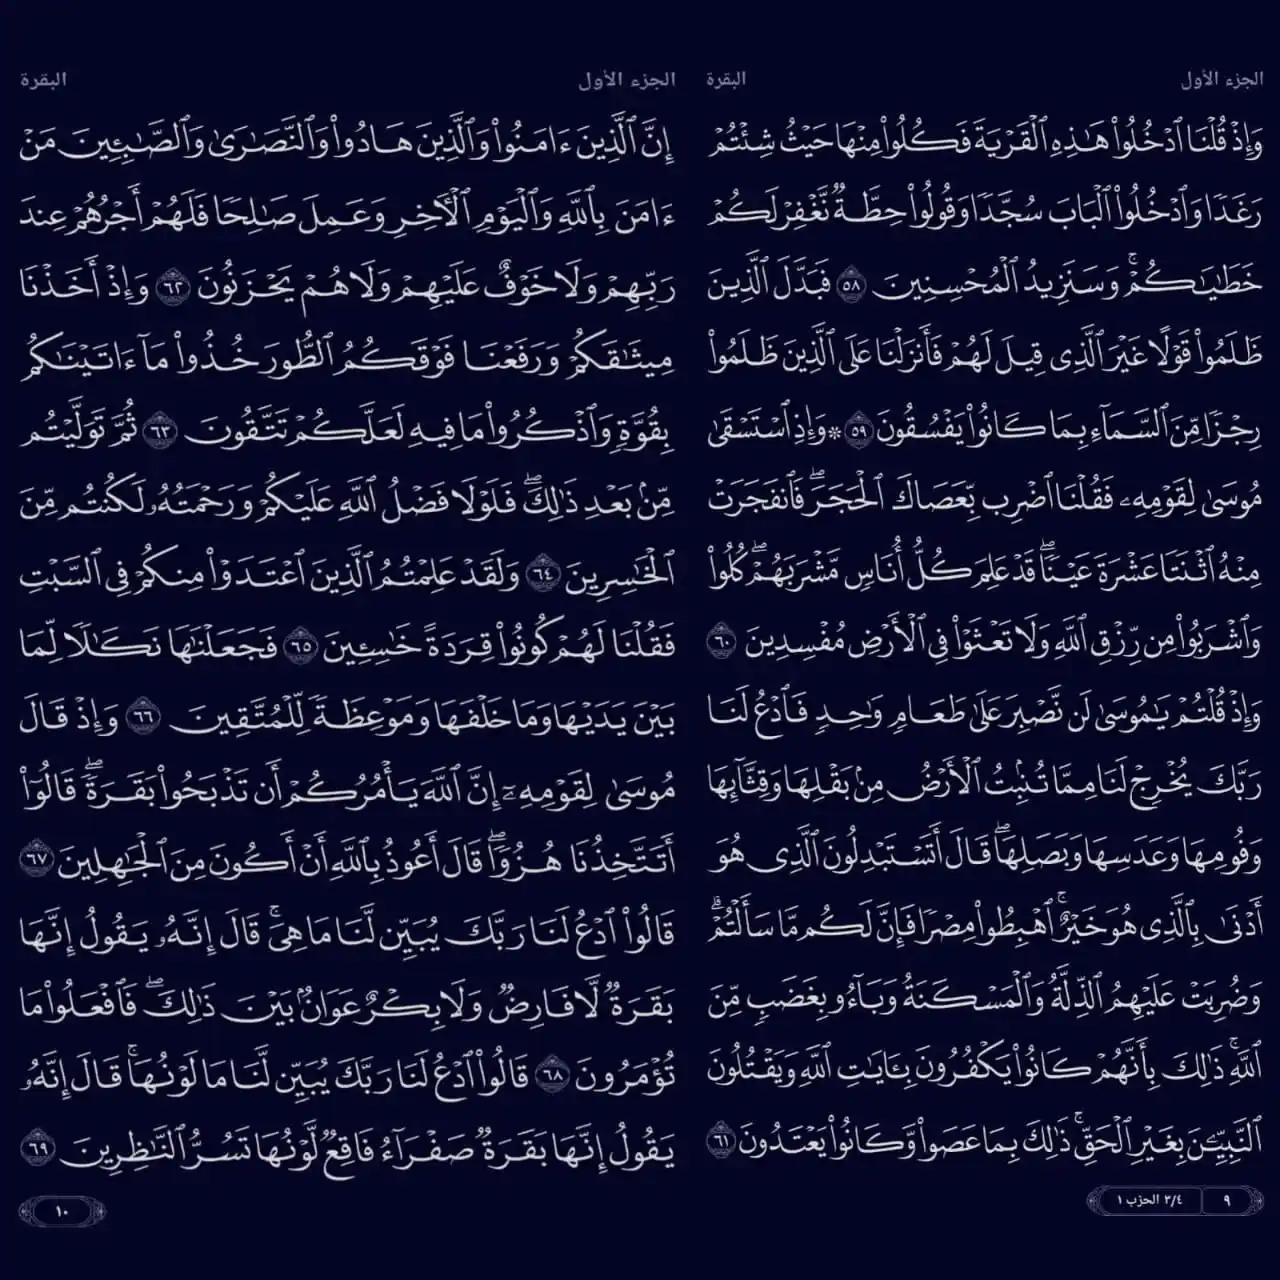 الجزء الأول
البقرة
وَإِذْ قُلْنَا ٱدْخُلُوا۟ هَـٰذِهِ ٱلْقَرْيَةَ فَكُلُوا۟ مِنْهَا حَيْثُ شِئْتُمْ
رَغَدًا وَٱدْخُلُوا۟ ٱلْبَابَ سُجَّدًا وَقُولُوا۟ حِطَّةٌ نَّغْفِرْ لَكُمْ
خَطَـٰيَـٰكُمْ ۚ وَسَنَزِيدُ ٱلْمُحْسِنِينَ ٥٨ فَبَدَّلَ ٱلَّذِينَ
ظَلَمُوا۟ قَوْلًا غَيْرَ ٱلَّذِى قِيلَ لَهُمْ فَأَنزَلْنَا عَلَى ٱلَّذِينَ ظَلَمُوا۟
رِجْزًا مِّنَ ٱلسَّمَآءِ بِمَا كَانُوا۟ يَفْسُقُونَ ٥٩ * وَإِذِ ٱسْتَسْقَىٰ
مُوسَىٰ لِقَوْمِهِۦ فَقُلْنَا ٱضْرِب بِّعَصَاكَ ٱلْحَجَرَ ۖ فَٱنفَجَرَتْ
مِنْهُ ٱثْنَتَا عَشْرَةَ عَيْنًا ۖ قَدْ عَلِمَ كُلُّ أُنَاسٍ مَّشْرَبَهُمْ ۖ كُلُوا۟
وَٱشْرَبُوا۟ مِن رِّزْقِ ٱللَّهِ وَلَا تَعْثَوْا۟ فِى ٱلْأَرْضِ مُفْسِدِينَ ٦٠
وَإِذْ قُلْتُمْ يَـٰمُوسَىٰ لَن نَّصْبِرَ عَلَىٰ طَعَامٍ وَٰحِدٍ فَٱدْعُ لَنَا
رَبَّكَ يُخْرِجْ لَنَا مِمَّا تُنۢبِتُ ٱلْأَرْضُ مِنۢ بَقْلِهَا وَقِثَّآئِهَا
وَفُومِهَا وَعَدَسِهَا وَبَصَلِهَا ۖ قَالَ أَتَسْتَبْدِلُونَ ٱلَّذِى هُوَ
أَدْنَىٰ بِٱلَّذِى هُوَ خَيْرٌ ۚ ٱهْبِطُوا۟ مِصْرًا فَإِنَّ لَكُم مَّا سَأَلْتُمْ ۗ
وَضُرِبَتْ عَلَيْهِمُ ٱلذِّلَّةُ وَٱلْمَسْكَنَةُ وَبَآءُو بِغَضَبٍ مِّنَ
ٱللَّهِ ۚ ذَٰلِكَ بِأَنَّهُمْ كَانُوا۟ يَكْفُرُونَ بِـَٔايَـٰتِ ٱللَّهِ وَيَقْتُلُونَ
ٱلنَّبِيِّـۧنَ بِغَيْرِ ٱلْحَقِّ ۚ ذَٰلِكَ بِمَا عَصَوا۟ وَّكَانُوا۟ يَعْتَدُونَ ٦١
٩
٣/٤ الحزب ١
الجزء الأول
البقرة
إِنَّ ٱلَّذِينَ ءَامَنُوا۟ وَٱلَّذِينَ هَادُوا۟ وَٱلنَّصَـٰرَىٰ وَٱلصَّـٰبِـِٔينَ مَنْ
ءَامَنَ بِٱللَّهِ وَٱلْيَوْمِ ٱلْـَٔاخِرِ وَعَمِلَ صَـٰلِحًا فَلَهُمْ أَجْرُهُمْ عِندَ
رَبِّهِمْ وَلَا خَوْفٌ عَلَيْهِمْ وَلَا هُمْ يَحْزَنُونَ ٦٢ وَإِذْ أَخَذْنَا
مِيثَـٰقَكُمْ وَرَفَعْنَا فَوْقَكُمُ ٱلطُّورَ خُذُوا۟ مَآ ءَاتَيْنَـٰكُم
بِقُوَّةٍ وَٱذْكُرُوا۟ مَا فِيهِ لَعَلَّكُمْ تَتَّقُونَ ٦٣ ثُمَّ تَوَلَّيْتُم
مِّنۢ بَعْدِ ذَٰلِكَ ۖ فَلَوْلَا فَضْلُ ٱللَّهِ عَلَيْكُمْ وَرَحْمَتُهُۥ لَكُنتُم مِّنَ
ٱلْخَـٰسِرِينَ ٦٤ وَلَقَدْ عَلِمْتُمُ ٱلَّذِينَ ٱعْتَدَوْا۟ مِنكُمْ فِى ٱلسَّبْتِ
فَقُلْنَا لَهُمْ كُونُوا۟ قِرَدَةً خَـٰسِـِٔينَ ٦٥ فَجَعَلْنَـٰهَا نَكَـٰلًا لِّمَا
بَيْنَ يَدَيْهَا وَمَا خَلْفَهَا وَمَوْعِظَةً لِّلْمُتَّقِينَ ٦٦ وَإِذْ قَالَ
مُوسَىٰ لِقَوْمِهِۦٓ إِنَّ ٱللَّهَ يَأْمُرُكُمْ أَن تَذْبَحُوا۟ بَقَرَةً ۖ قَالُوٓا۟
أَتَتَّخِذُنَا هُزُوًا ۖ قَالَ أَعُوذُ بِٱللَّهِ أَنْ أَكُونَ مِنَ ٱلْجَـٰهِلِينَ ٦٧
قَالُوا۟ ٱدْعُ لَنَا رَبَّكَ يُبَيِّن لَّنَا مَا هِىَ ۚ قَالَ إِنَّهُۥ يَقُولُ إِنَّهَا
بَقَرَةٌ لَّا فَارِضٌ وَلَا بِكْرٌ عَوَانٌۢ بَيْنَ ذَٰلِكَ ۖ فَٱفْعَلُوا۟ مَا
تُؤْمَرُونَ ٦٨ قَالُوا۟ ٱدْعُ لَنَا رَبَّكَ يُبَيِّن لَّنَا مَا لَوْنُهَا ۚ قَالَ إِنَّهُۥ
يَقُولُ إِنَّهَا بَقَرَةٌ صَفْرَآءُ فَاقِعٌ لَّوْنُهَا تَسُرُّ ٱلنَّـٰظِرِينَ ٦٩
١٠